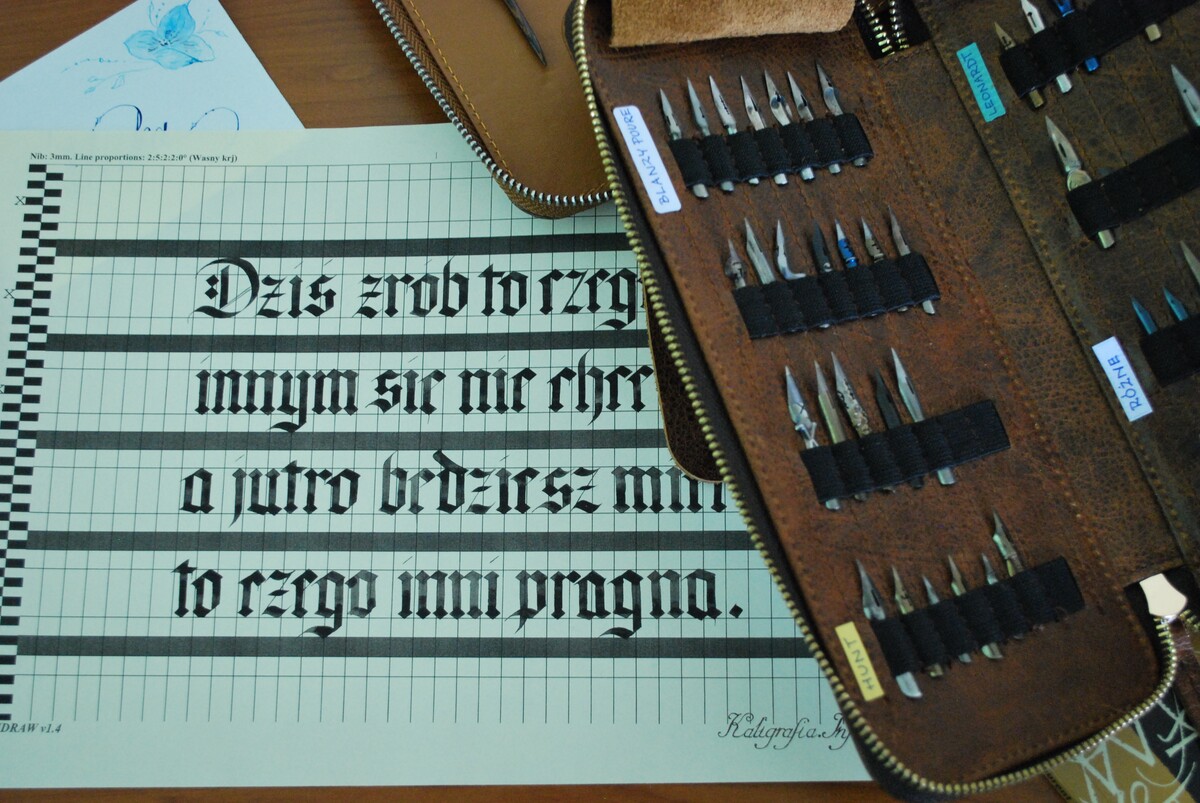 Nib: 3mm. Line proportions: 2:5:2:2:0° (Wasny krj)
Dziś zrób to czeg
innym sie nie chce
a jutro bedziesz mia
to czego inni pragna.
DRAW v1.4
Kaligrafia.In
BLANZY POURE
LEONARDT
RÓŻNE
HUNT